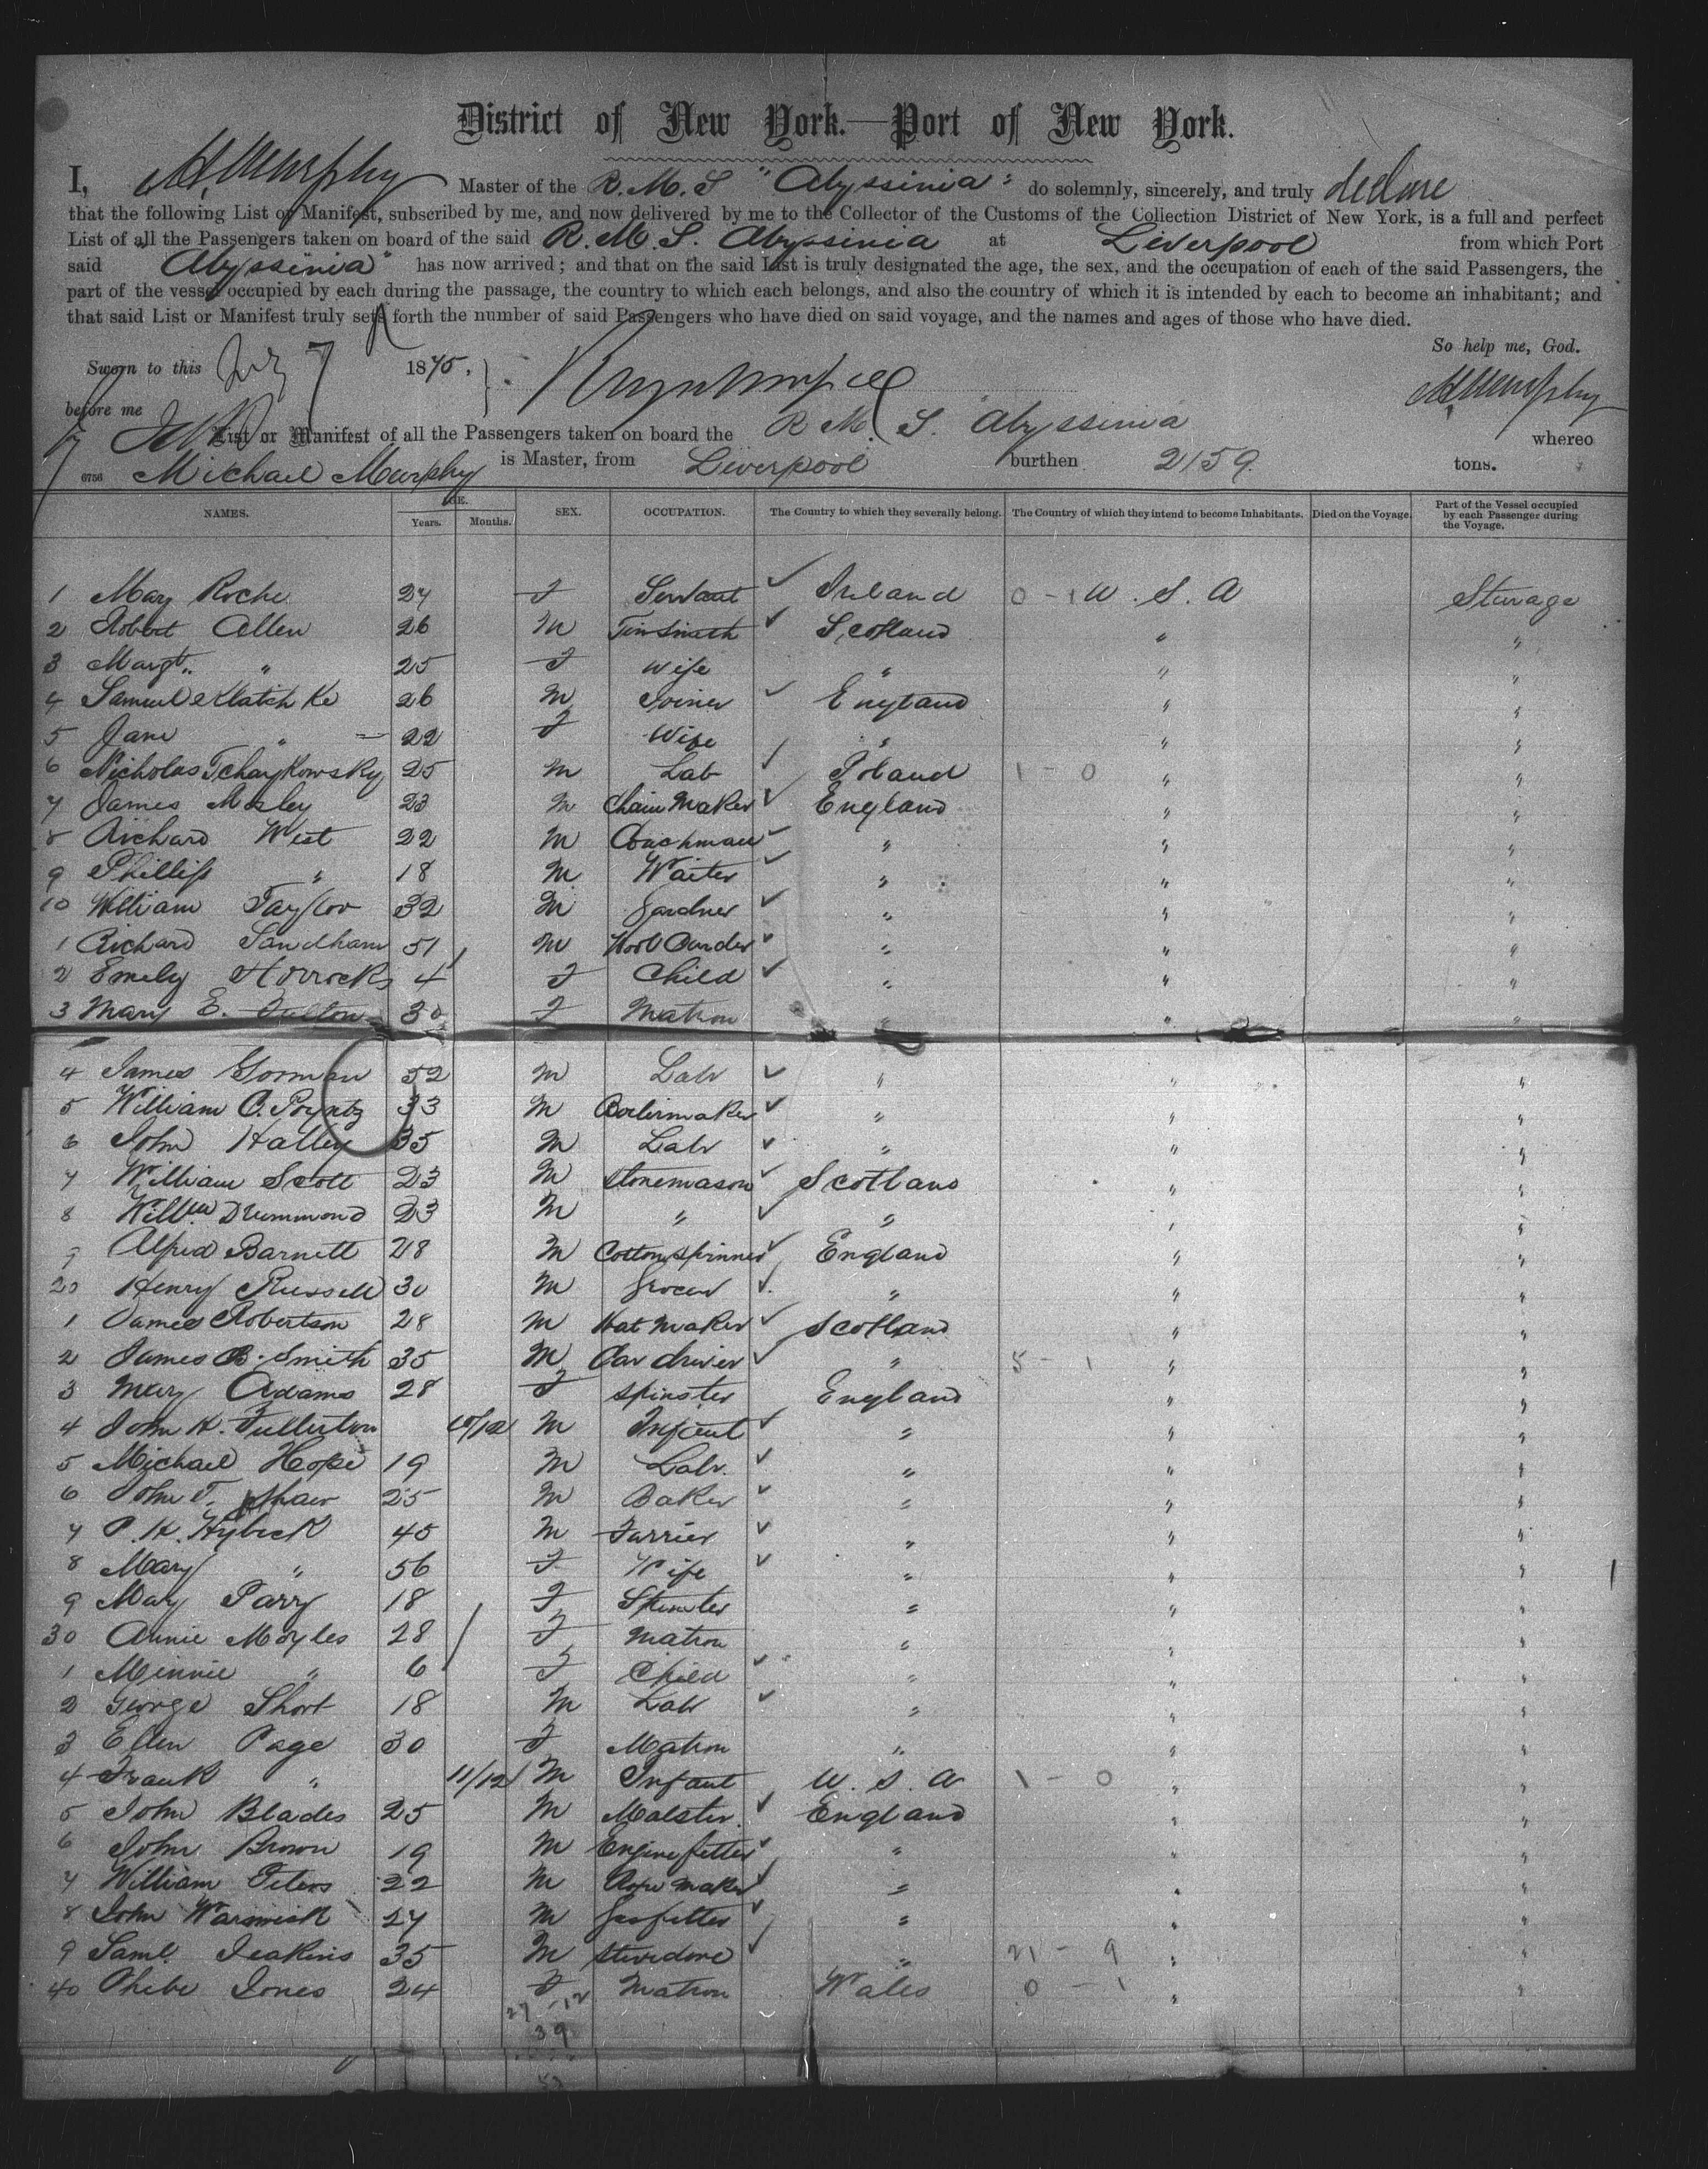 District of New York.—Port of New York.
I, M. Murphy Master of the R. M. S "Abyssinia" do solemnly, sincerely, and truly declare
that the following List or Manifest, subscribed by me, and now delivered by me to the Collector of the Customs of the Collection District of New York, is a full and perfect
List of all the Passengers taken on board of the said R. M. S. Abyssinia at Liverpool from which Port
said Abyssinia" has now arrived; and that on the said List is truly designated the age, the sex, and the occupation of each of the said Passengers, the
part of the vessel occupied by each during the passage, the country to which each belongs, and also the country of which it is intended by each to become an inhabitant; and
that said List or Manifest truly sets forth the number of said Passengers who have died on said voyage, and the names and ages of those who have died.
So help me, God.
Sworn to this 7 1875.
before me M. Murphy
List or Manifest of all the Passengers taken on board the R M. S. Abyssinia whereo
6756 Michael Murphy is Master, from Liverpool burthen 2159. tons.
NAMES. AGE. Years. Months. SEX. OCCUPATION. The Country to which they severally belong. The Country of which they intend to become Inhabitants. Died on the Voyage. Part of the Vessel occupied by each Passenger during the Voyage.
1 Mary Roche 24 F Servant Ireland 0 - 1 U. S. A Steerage
2 Robert Allen 26 M Tinsmith Scotland " "
3 Margt. " 25 F Wife " " "
4 Samuel 26 M Joiner England " "
5 Jane " 22 F Wife " " "
6 Nicholas Tchaykowsky 25 M Lab Poland 1 - 0 " "
7 James Mosley 23 M Chain Maker England " "
8 Richard West 22 M Coachman " " "
9 Phillip " 18 M Waiter " " "
10 William Taylor 32 M Gardner " " "
1 Richard Sandham 51 M " " "
2 Emily Horrocks 4 F Child " " "
3 Mary E. Fulton 30 F Matron " " "
4 James Gorman 52 M Labr " " "
5 William C. Poyntz 33 M Boilermaker " " "
6 John Halley 35 M Labr " " "
7 William Scott 23 M Stonemason Scotland " "
8 Willm Drummond 23 M " " " "
9 Alfred Barnett 28 M Cotton Spinner England " "
20 Henry Russell 30 M Grocer " " "
1 James Robertson 28 M Hat Maker Scotland " "
2 James B. Smith 35 M Car driver " 5 - 1 " "
3 Mary Adams 28 F Spinster England " "
4 John H. Fullerton 10/12 M Infant " " "
5 Michael Hope 19 M Labr. " " "
6 John T. Shaw 25 M Baker " " "
7 P. H. Hybeck 45 M Furrier " " "
8 Mary " 56 F Wife " " "
9 Mary Parry 18 F Spinster " " "
30 Annie Moyles 28 F Matron " " "
1 Minnie " 6 F Child " " "
2 George Short 18 M Labr " " "
3 Ellen Page 30 F Matron " " "
4 Frank " 11/12 M Infant U. S. A 1 - 0 " "
5 John Blades 25 M Malster England " "
6 John Brown 19 M Engine fitter " " "
7 William Peters 22 M Rope Maker " " "
8 John Warwick 27 M Gasfitter " " "
9 Saml. Jeakins 35 M Stevedore " 21 - 9 " "
40 Phebe Jones 24 F Matron Wales 0 - 1 " "
27 - 12
39